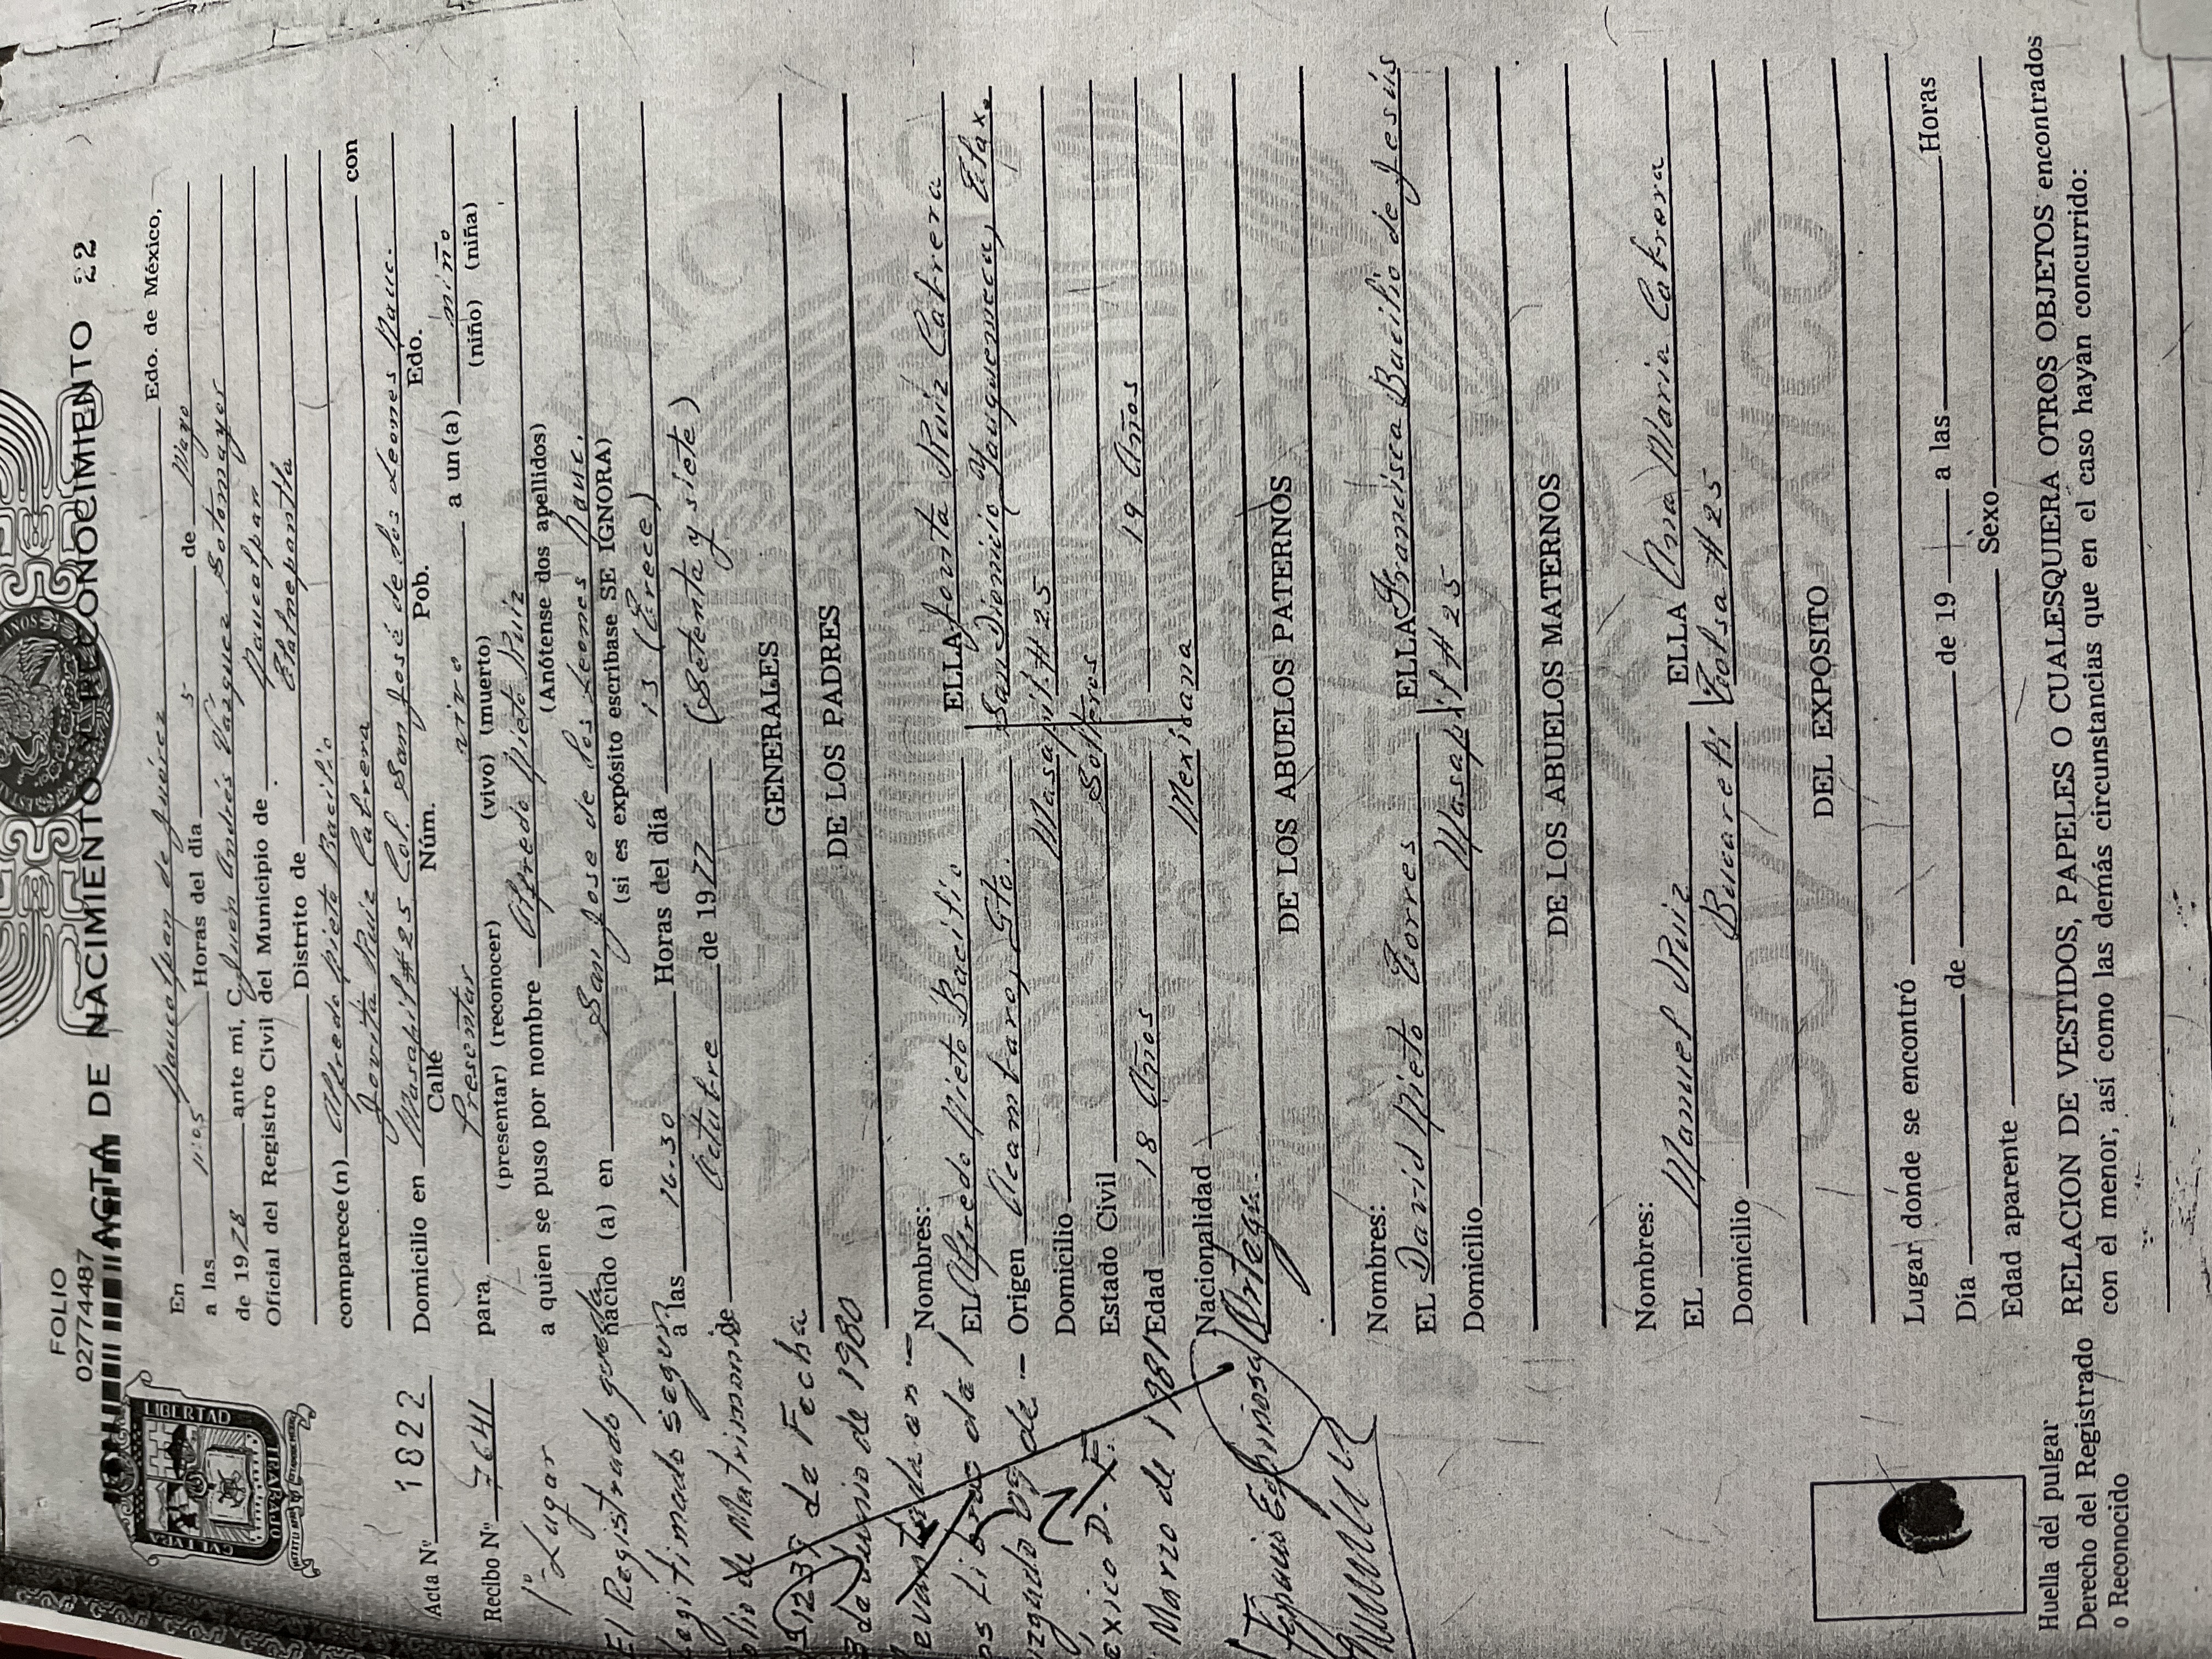 FOLIO
02774487
ACTA DE NACIMIENTO Y/RECONOCIMIENTO 22
LIBERTAD
TRABAJO
CVLTVRA
En Naucalpan de Juárez Edo. de México,
a las 11:05 Horas del día 5 de Mayo
de 1978 ante mí, C. Juan Andrés Vazquez Sotomayor
Oficial del Registro Civil del Municipio de Naucalpan
Distrito de Tlalnepantla
comparece(n) Alfredo Nieto Bacilio con
Jovita Ruiz Cabrera
Domicilio en Masapil # 25 Col. San José de los Leones Nauc.
Calle Núm. Pob. Edo.
para Presentar vivo a un(a) niño
(presentar) (reconocer) (vivo) (muerto) (niño) (niña)
a quien se puso por nombre Alfredo Nieto Ruiz
(Anótense dos apellidos)
nacido (a) en San Jose de los Leones Nauc.
(si es expósito escríbase SE IGNORA)
a las 16.30 Horas del día 13 (Trece)
de Octubre de 1977 (Setenta y siete)
GENERALES
DE LOS PADRES
Nombres:
EL Alfredo Nieto Bacilio ELLA Jovita Ruiz Cabrera
Origen Acambaro, Gto. San Dionicio Yauquemecan, Tlax.
Domicilio Masapil # 25
Estado Civil Solteros
Edad 18 Años 19 Años
Nacionalidad Mexicana
DE LOS ABUELOS PATERNOS
Nombres:
EL David Nieto Torres ELLA Francisca Bacilio de Jesús
Domicilio Masapil # 25
DE LOS ABUELOS MATERNOS
Nombres:
EL Manuel Ruiz ELLA Ana Maria Cabrera
Domicilio Bucareli # 25
DEL EXPOSITO
Lugar donde se encontró
Día de de 19 a las Horas
Edad aparente Sexo
RELACION DE VESTIDOS, PAPELES O CUALESQUIERA OTROS OBJETOS encontrados
con el menor, así como las demás circunstancias que en el caso hayan concurrido:
Acta Nº 1822
Recibo Nº 7641
1º Lugar
El Registrado queda
Legitimado segun
de Matrimonio
51239 La Fecha
de Junio de 1980
Levantada en
os Libros de l
uzgado 09 de -
éxico D. F.
Marzo de 1981
Espinosa Ortega.
Huella del pulgar
Derecho del Registrado
o Reconocido